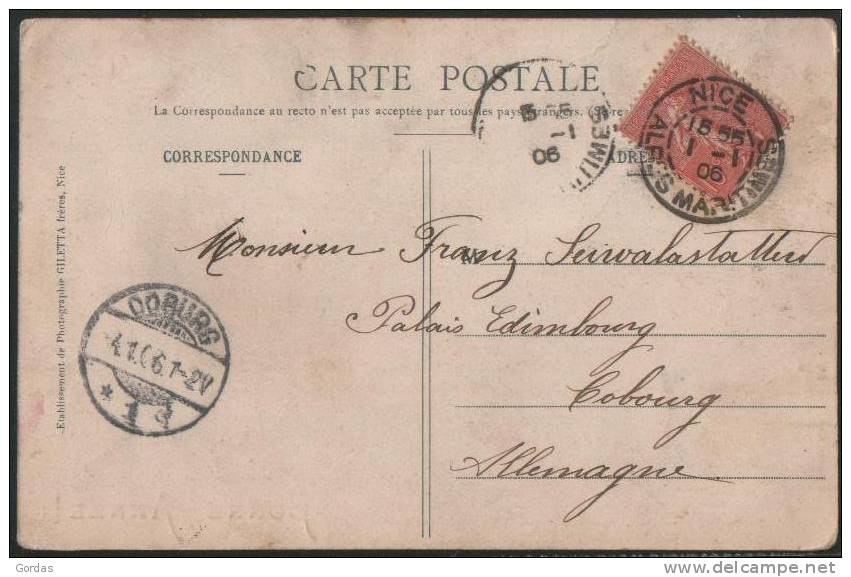 CARTE POSTALE
La Correspondance au recto n'est pas acceptée par tous les pays étrangers.
CORRESPONDANCE
NICE
15 55
1 - 1
06
ALPES MARITIMES
5 55
-1
06
Monsieur Franz
Palais Edimbourg
Cobourg
Allemagne
COBURG
4.1.06.1-2V
* 1
Etablissement de Photographie GILETTA frères, Nice
Gordas
delcampe.net